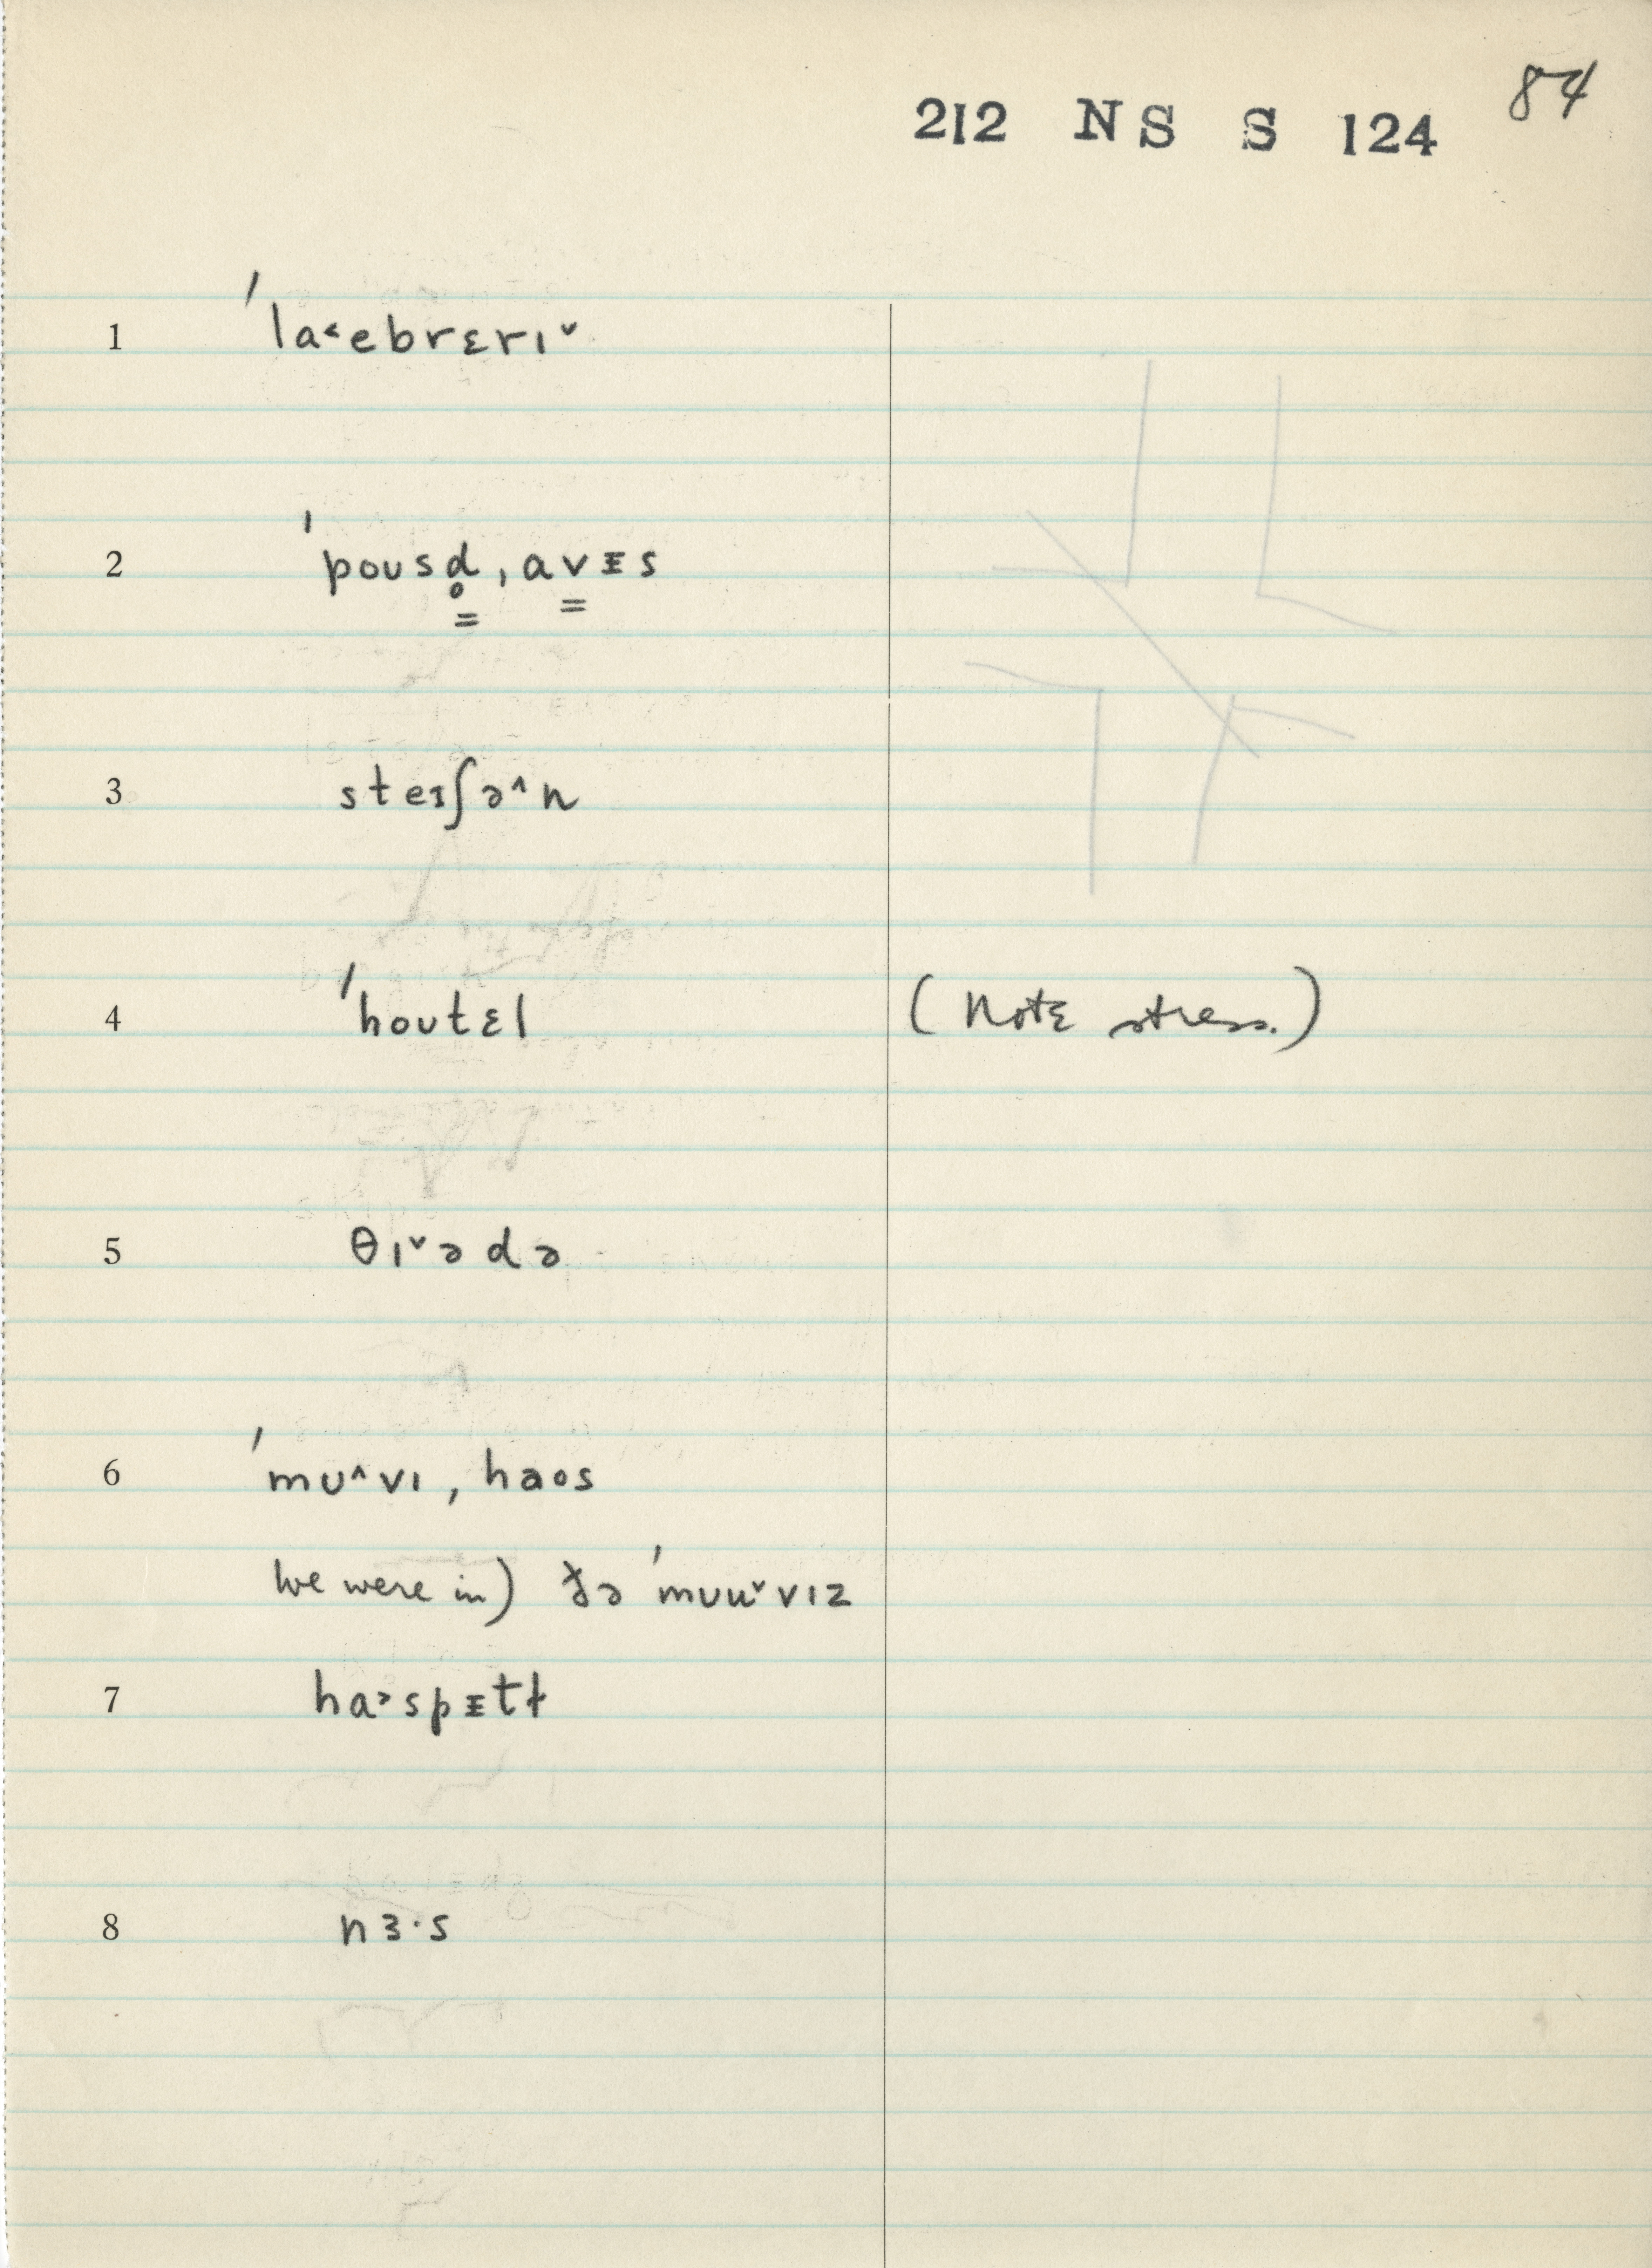 84
212 NS S 124
1 ˈla˂ebrɛrɪ˅
2 ˈpoʊsd̥̳, av̳ᵻs
3 steɪʃə˄n
4 ˈhoʊtɛl (Note stress.)
5 θɪ˅ədə
6 ˈmʊ˄vɪ, haos
We were in) ðə ˈmʊu˅vɪz
7 ha˃spᵻtɫ
8 nɜ·s